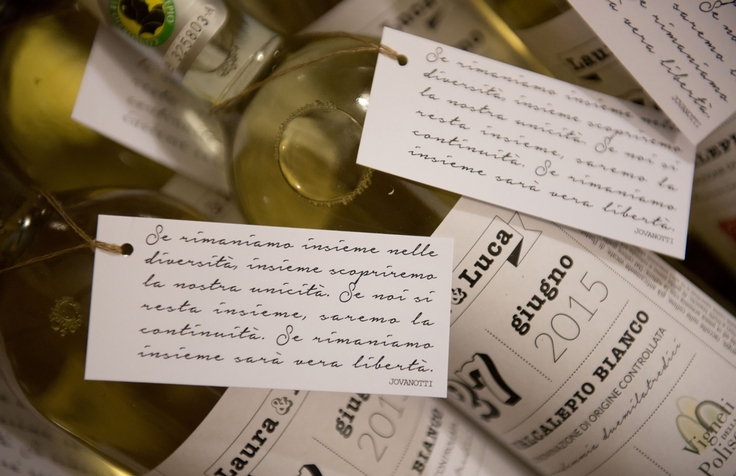 325803-A
Se rimaniamo insieme nelle
diversità, insieme scopriremo
la nostra unicità. Se noi si
resta insieme, saremo la
continuità. Se rimaniamo
insieme sarà vera libertà.
JOVANOTTI
Se rimaniamo insieme nelle
diversità, insieme scopriremo
la nostra unicità. Se noi si
resta insieme, saremo la
continuità. Se rimaniamo
insieme sarà vera libertà.
JOVANOTTI
saremo
vera libertà.
JOVANOTTI
Laura
& Luca
27
giugno
2015
VALCALEPIO BIANCO
DENOMINAZIONE DI ORIGINE CONTROLLATA
duemilatredici
Vigneti
DELLA
Polisa
Laura &
giugno
201
BIANCO
CALEPIO BIAN